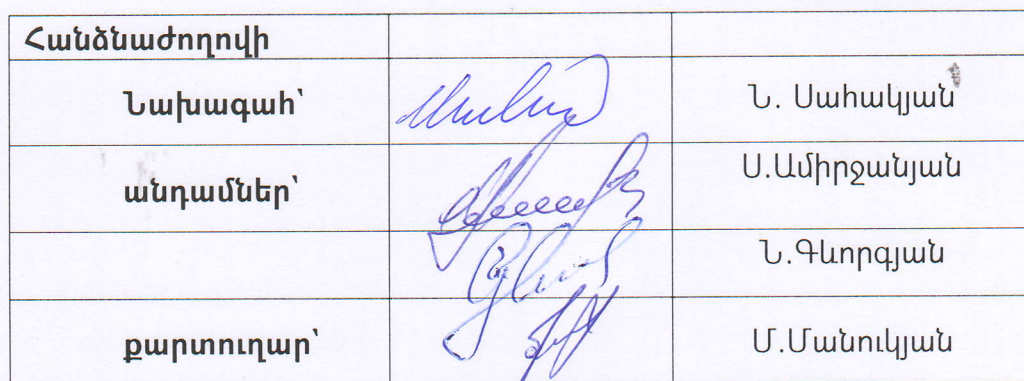 Հանձնաժողովի
Նախագահ՝ Ն. Սահակյան
անդամներ՝ Ս.Ամիրջանյան
Ն.Գևորգյան
քարտուղար՝ Մ.Մանուկյան